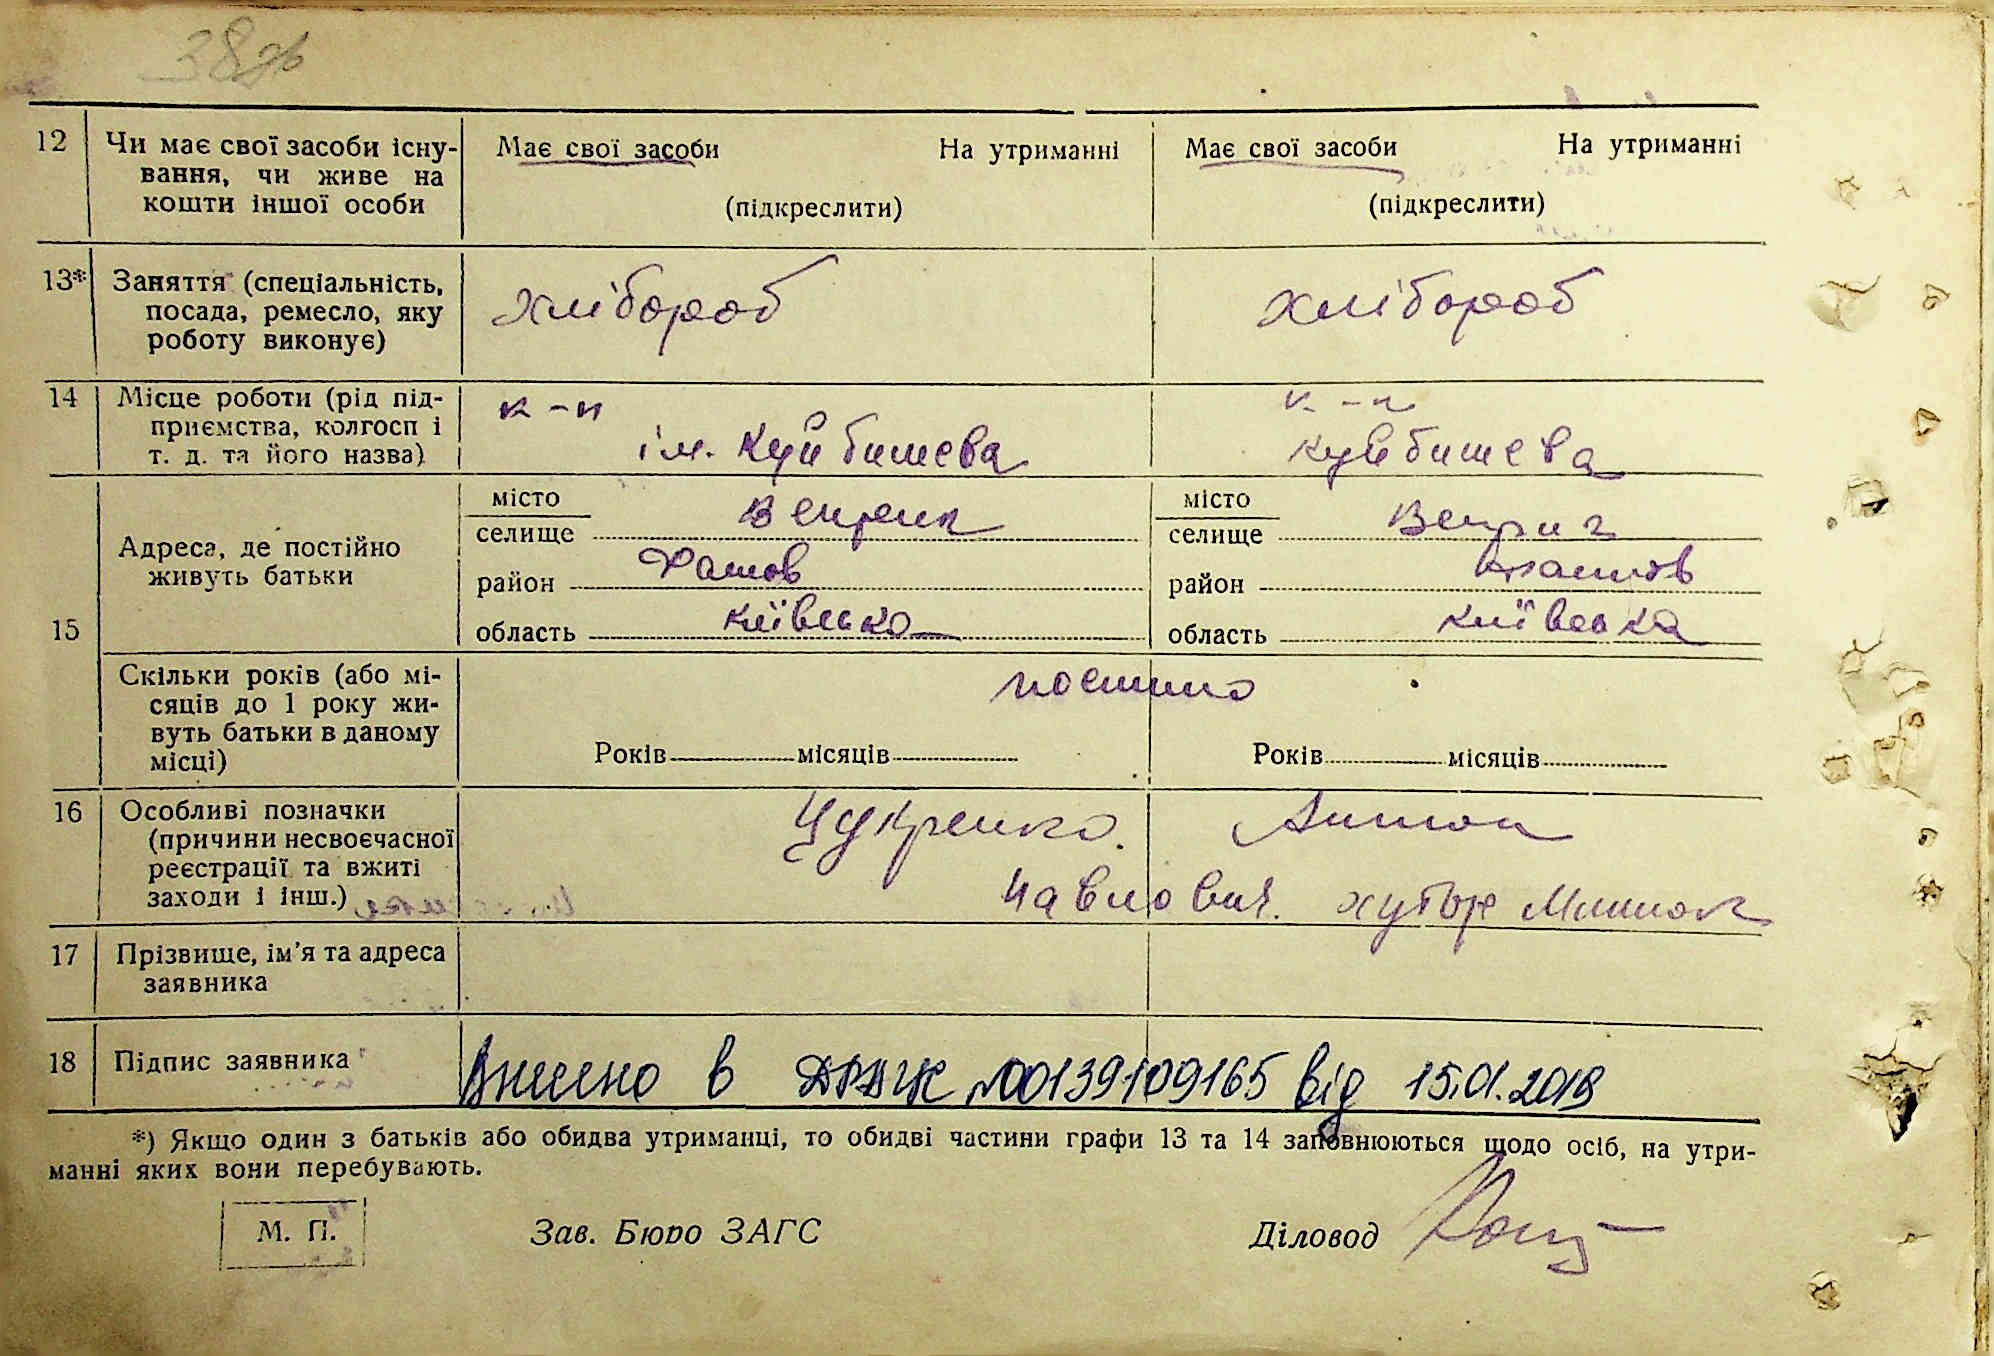 38зв
12 Чи має свої засоби існу- Має свої засоби На утриманні Має свої засоби На утриманні
вання, чи живе на
кошти іншої особи (підкреслити) (підкреслити)
13* Заняття (спеціальність, хлібороб хлібороб
посада, ремесло, яку
роботу виконує)
14 Місце роботи (рід під- к-п к-п
приємства, колгосп і ім. Куйбишева Куйбишева
т. д. та його назва)
15 Адреса, де постійно живуть батьки
місто Веприк місто Веприк
селище селище
район Фастов район Фастов
область Київська область Київська
Скільки років (або мі- постійно
сяців до 1 року жи-
вуть батьки в даному Років місяців Років місяців
місці)
16 Особливі позначки Цукренко. Антон
(причини несвоєчасної
реєстрації та вжиті Павлович. хутор
заходи і інш.)
17 Прізвище, ім'я та адреса
заявника
18 Підпис заявника Внесено в ДРАЦС №00139109165 від 15.01.2019
*) Якщо один з батьків або обидва утриманці, то обидві частини графи 13 та 14 заповнюються щодо осіб, на утри-
манні яких вони перебувають.
М. П. Зав. Бюро ЗАГС Діловод